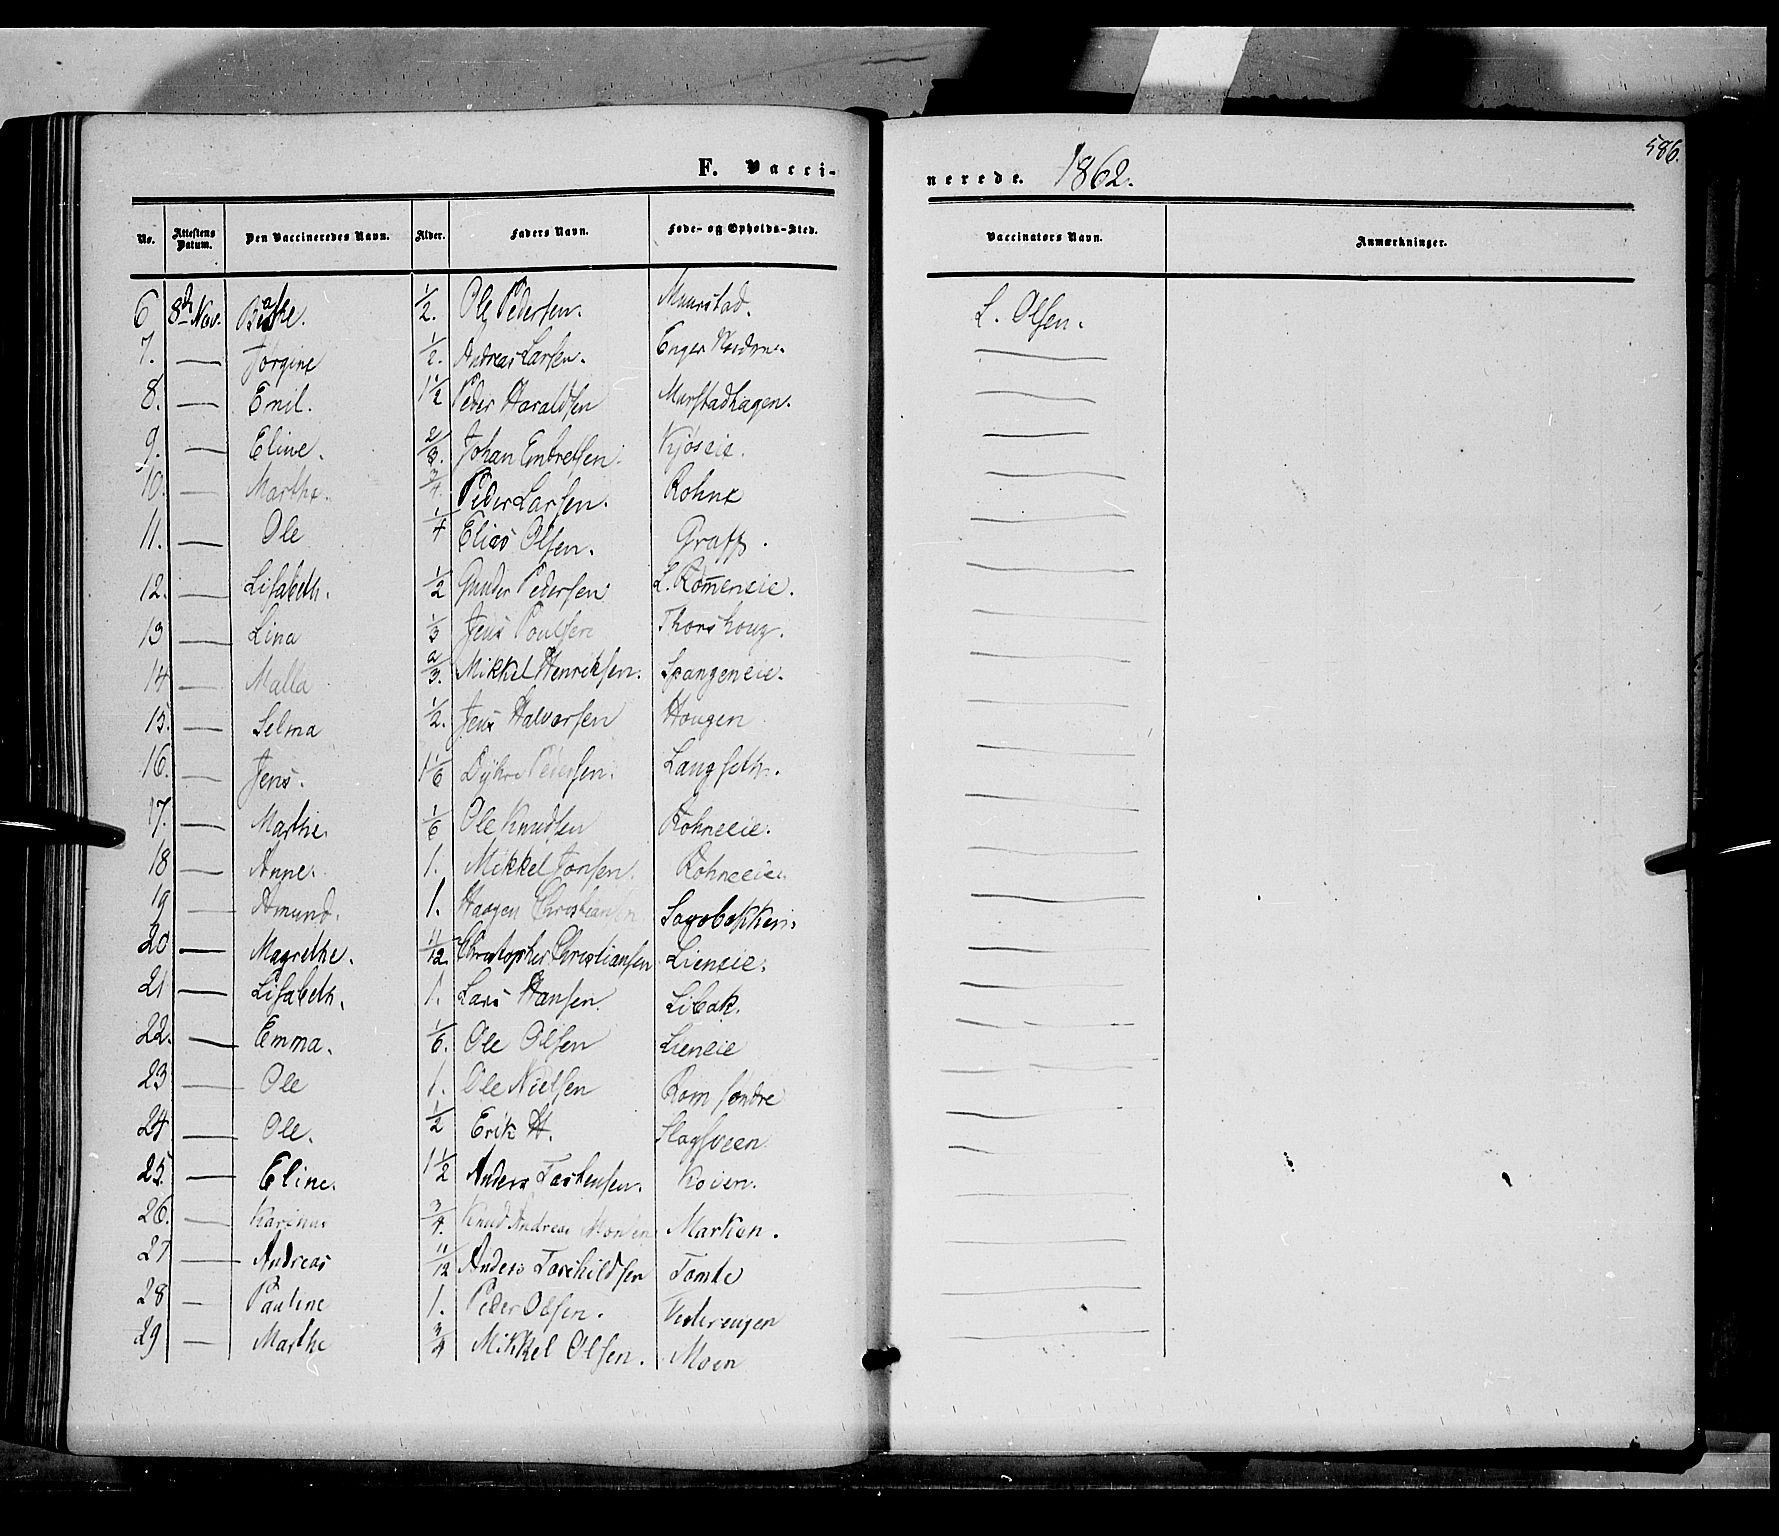 586.
F. Vacci-
nerede. 1862.
No. Attestens Datum. Den Vaccineredes Navn. Alder. Faders Navn. Føde- og Opholds-Sted. Vaccinators Navn. Anmærkninger.
6 8d Nov. 1/2. Ole Pedersen. Muurstad. L. Olsen.
7. — Jørgine 1/2. Andreas Larsen. Enger —
8. — Emil. 1 1/2 Peder Haraldsen Murstadhagen. —
9. — Eline. 2/3. Johan Embretsen. Kjøseie. —
10. — Marthe. 3/4. Peder Larsen. Rohne —
11. — Ole 1/4 Elias Olsen. Graff. —
12. — Lisabeth. 1/2 Gunder Pedersen L. Rom̅eneie. —
13 — Lina 1/3 Jens Poulsen Thorshoug. —
14 — Malla 2/3. Mikkel Henriksen. Spangeneie. —
15. — Selma 1/2. Jens Halvorsen Hougen —
16. — Jens. 1 1/6 Dyhre Pedersen. Langseth. —
17. — Marthe 1/6 Ole Knudsen Rohneeie. —
18 — Anne. 1. Mikkel Jonsen. Rohneeie. —
19 — Amund. 1. Haagen Christiansen —
20 — Magrethe. 11/12. Christopher Christiansen Lieneie. —
21 — Lisabeth. 1. Lars Hansen. Libak. —
22. — Emma. 1/6. Ole Olsen Lieneie —
23 — Ole 1. Ole Nielsen Rom søndre —
24 — Ole. 1/2 Erik H. Slagsveen —
25. — Eline. 1 1/2 Anders Torstensen. Koien. —
26. — Karinus 3/4. Knud Andreas Monsen Marken. —
27 — Andreas 11/12 Anders Torchildsen Tomte —
28 — Pauline 1. Peder Olsen. Vesterengen —
29 — Marthe 3/4 Mikkel Olsen. Moen —